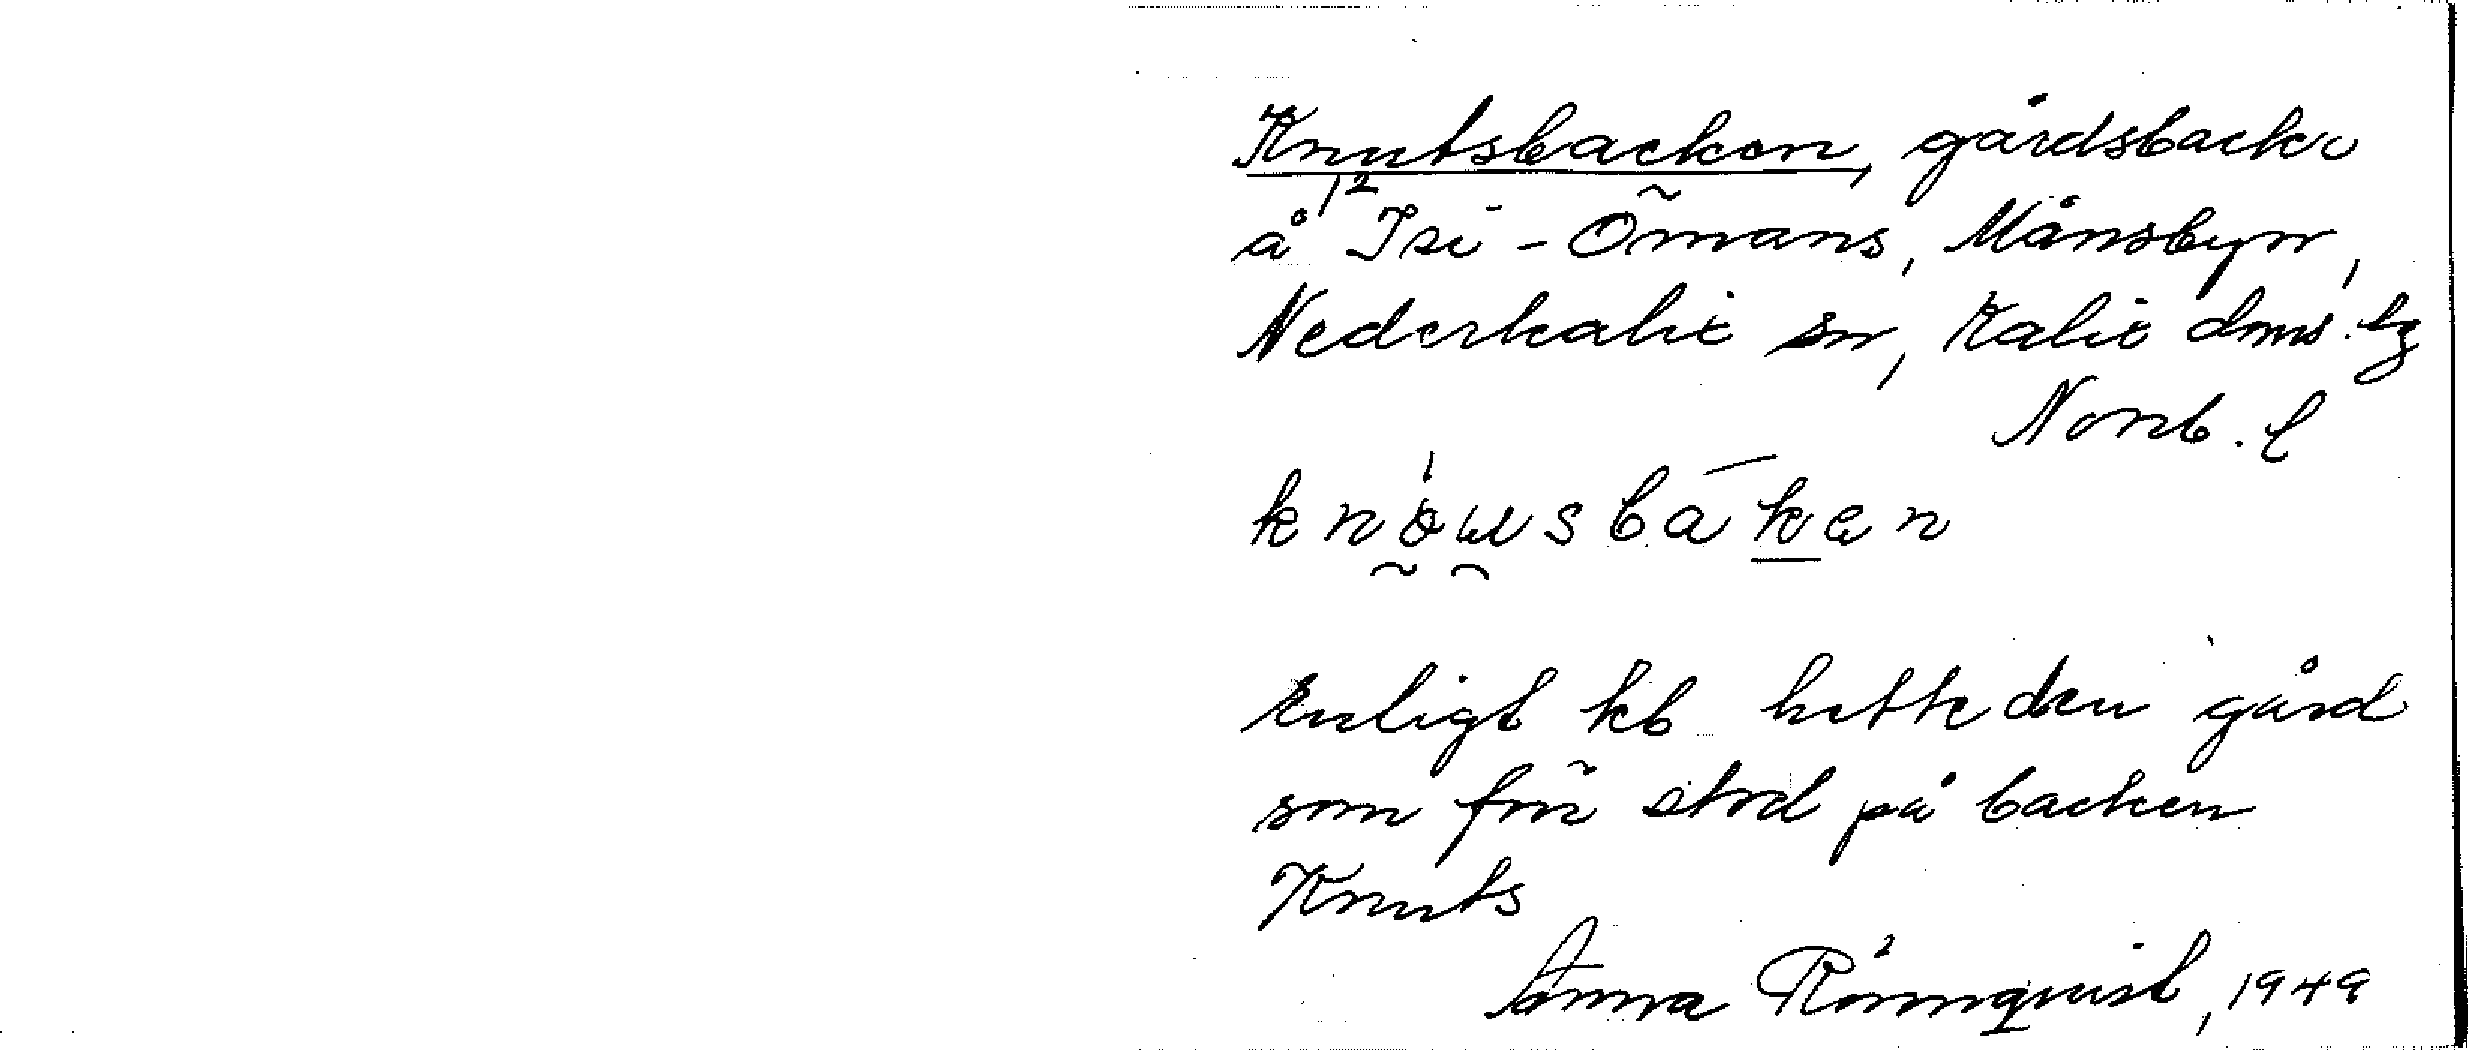 Knutsbacken, gårdsbacke
å 1² Isi-Ömans, Månsbyn,
Nederkalix sn, Kalix dms. tg
Norrb. l
knöusbaken
Enligt kb hette den gård
som förr stod på backen
Knuts
Anna Rönnqvist, 1949